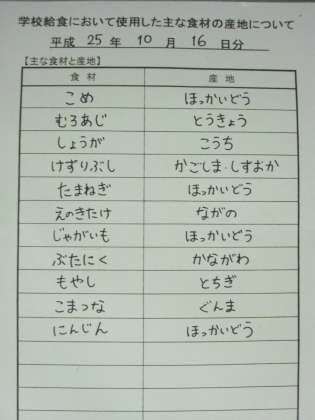 学校給食において使用した主な食材の産地について
平成 25 年 10 月 16 日分
【主な食材と産地】
食材 産地
こめ ほっかいどう
むろあじ とうきょう
しょうが こうち
けずりぶし かごしま・しずおか
たまねぎ ほっかいどう
えのきたけ ながの
じゃがいも ほっかいどう
ぶたにく かながわ
もやし とちぎ
こまつな ぐんま
にんじん ほっかいどう